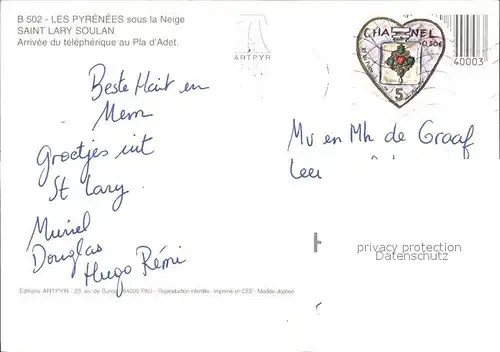 B 502 - LES PYRÉNÉES sous la Neige
SAINT LARY SOULAN
Arrivée du téléphérique au Pla d'Adet.
ARTPYR
CHANEL
0,50€
5
40003
Beste Mait en
Mem
Groetjes uit
St Lary.
Muriel
Douglas
Hugo Rémi
Mv en Mh de Graaf
privacy protection
Datenschutz
Editions ARTPYR - 23, av. de Buros - 64000 PAU - Reproduction interdite - Imprimé en CEE - Modèle déposé